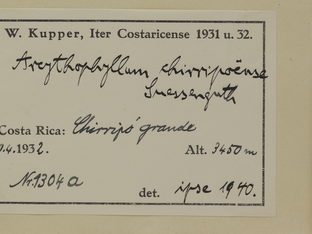 W. Kupper, Iter Costaricense 1931 u. 32.
Arcythophyllum chirripoënse
Suessenguth
Costa Rica: Chirripó grande
.4.1932. Alt. 3450 m
Nr. 1304 a
det. ipse 1940.